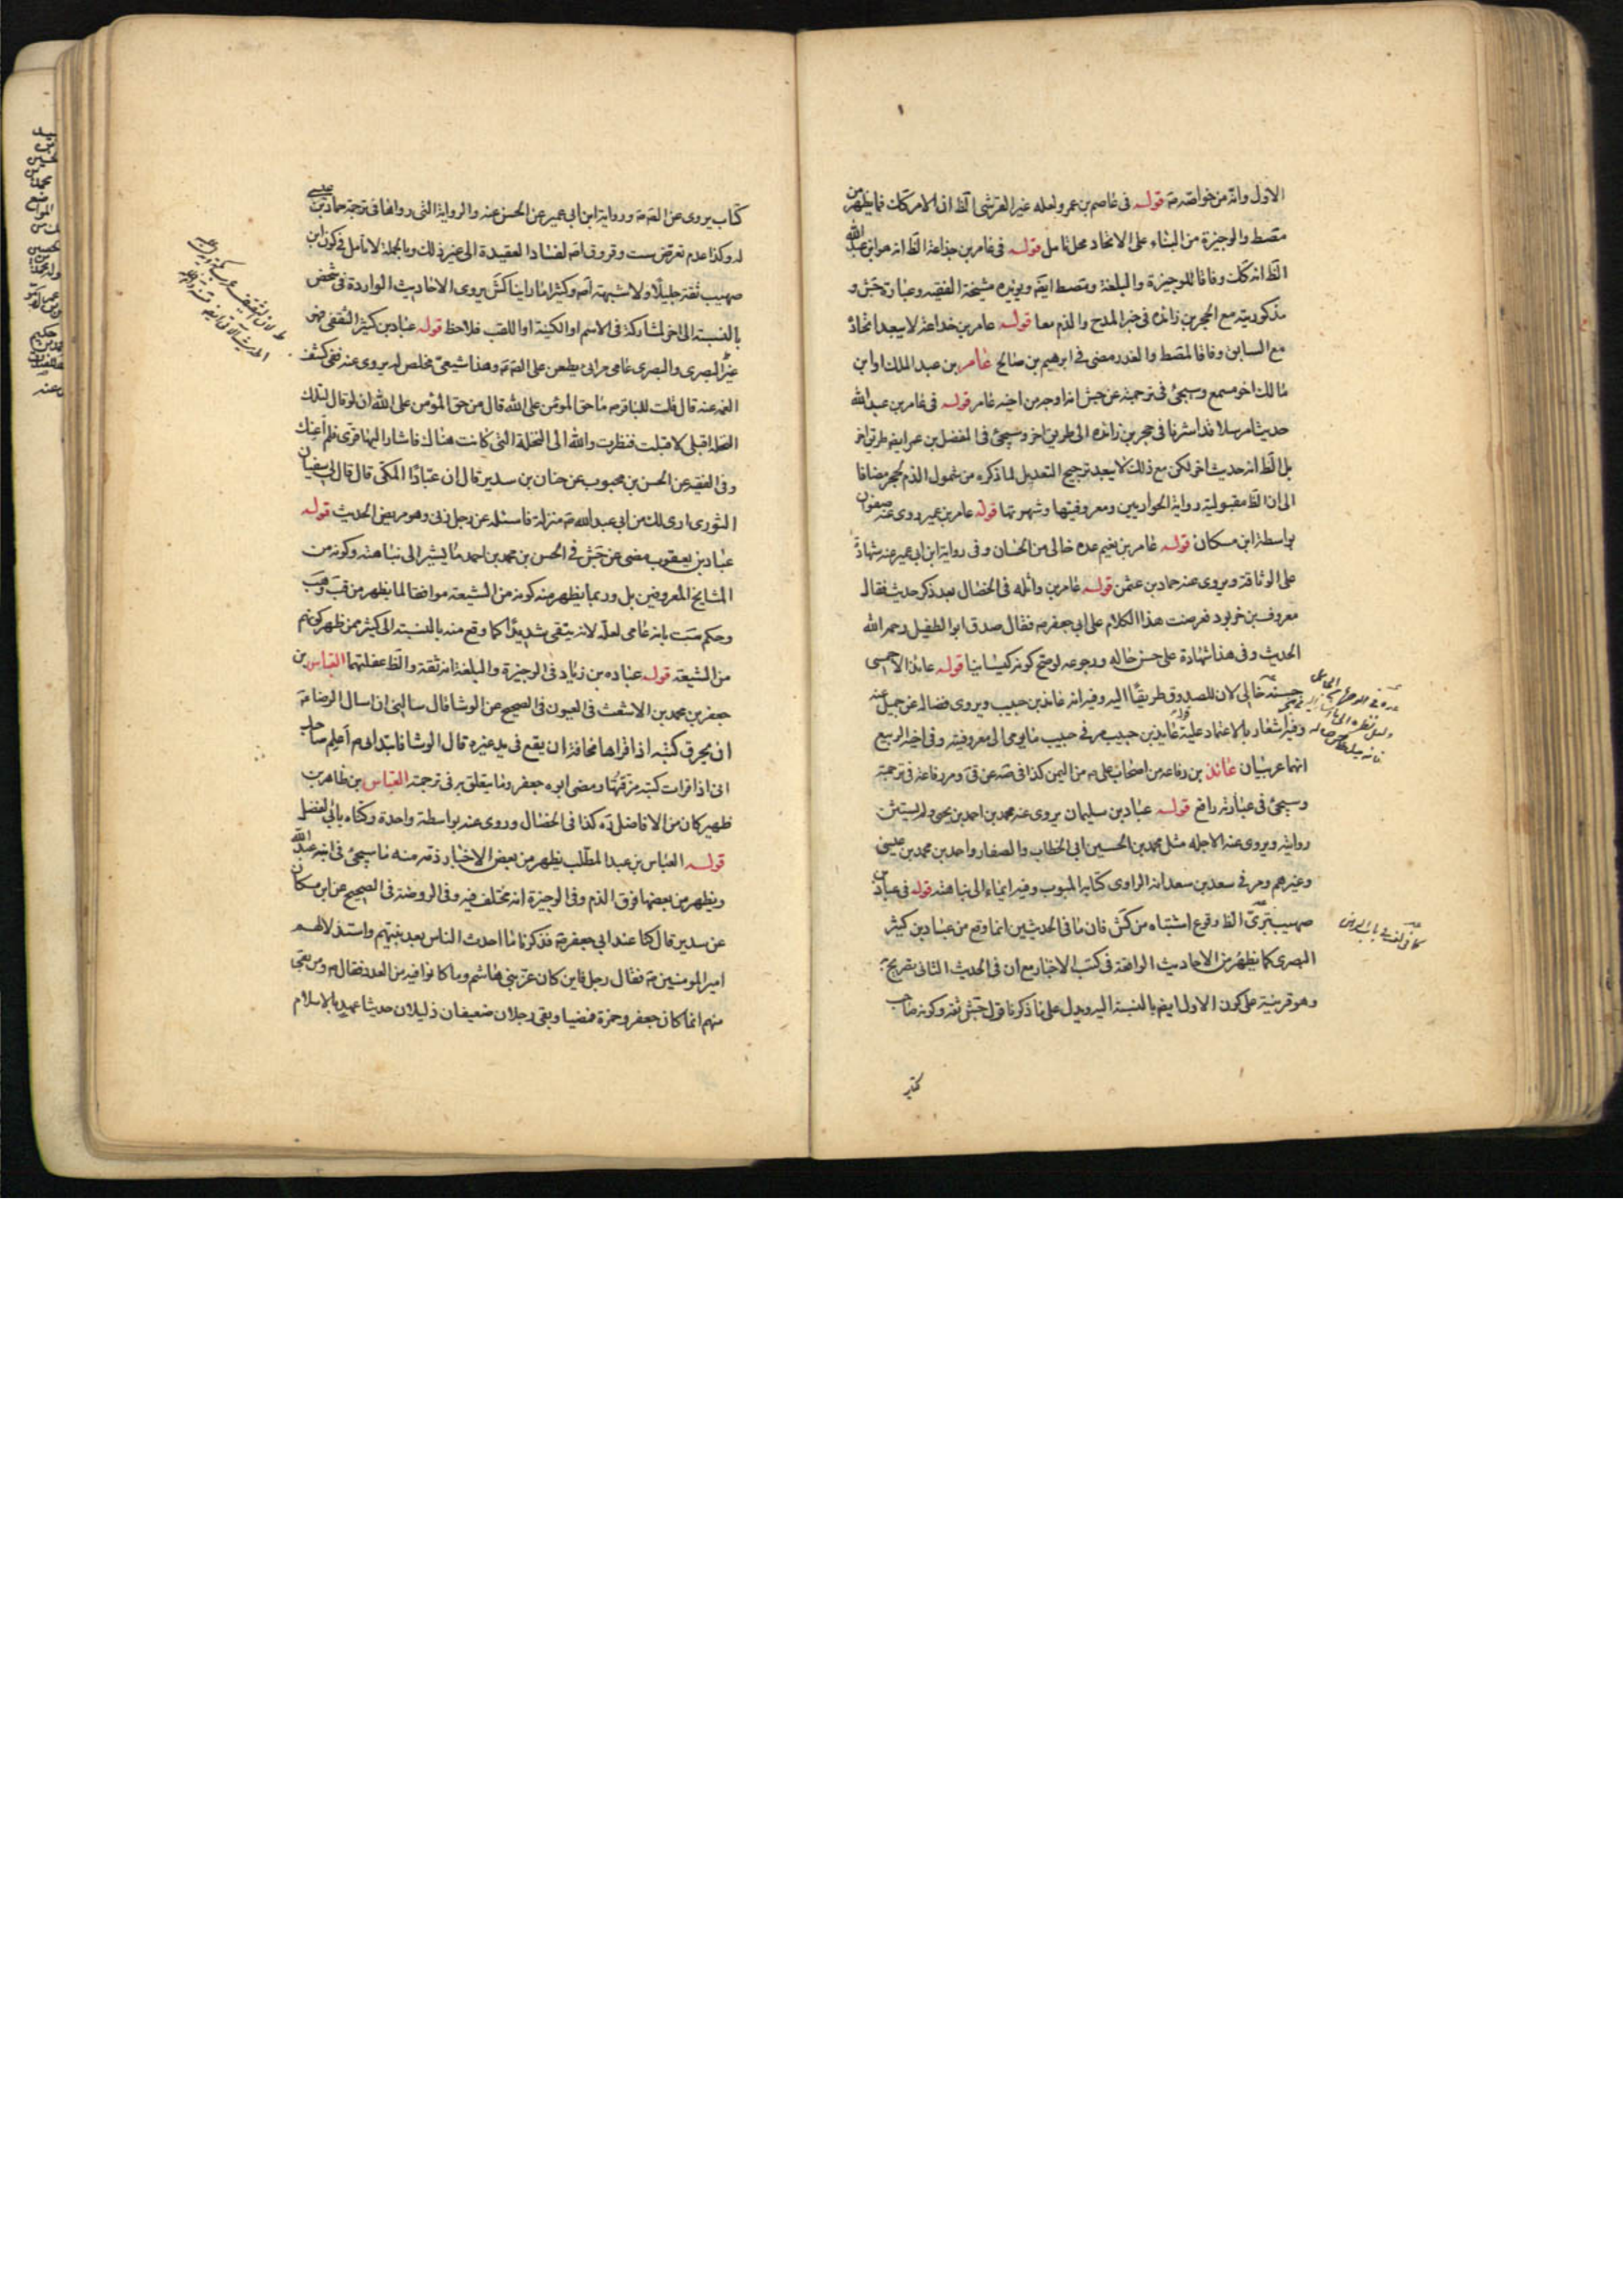 الاول وانه من خواصه ع قوله فى عاصم بن عمر ولعله غير القرشى الظ ان الامر كك فما يظهر من
مصط والوجيزة من البناء على الاتحاد محل تامل قوله فى عامر بن جذاعة الظ انه هو ابن عبد الله
الظ انه كك وفاقا للوجيزة والبلغة ومصط ايضم ويؤيده مشيخة الفقيه وعبارة جش و
مذكوريته مع الحجر بن زائده فى خبر المدح والذم معا قوله عامر بن خداعة لا يبعد اتحاده
مع السابق وفاقا لمصط والغدر مضى فى ابرهيم بن صالح عامر بن عبد الملك او ابن
مالك اخو مسمع وسيجئ فى ترجمته عن جش انه اوجه من اخيه عامر قوله فى عامر بن عبد الله
حديثا مرسلا قد اشرنا فى حجر بن زائده الى طريق اخر وسيجئ فى المفضل بن عمر ايضم طريق اخر
بل الظ انه حديث اخر لكن مع ذلك لا يبعد ترجيح التعديل لما ذكره من شمول الذم لحجر مضافا
الى ان الظ مقبولية رواية الحواريين ومعروفيتها وشهرتها قوله عامر بن عمير روى عنه صفوان
بواسطة ابن مسكان قوله عامر بن نعيم عده خالى من الحسان وفى رواية ابن ابى عمير عنه شهادة
على الوثاقة ويروى عنه حماد بن عثمن قوله عامر بن واثله فى الخصال بعد ذكر حديث فقال
معروف بن خربوذ فعرضت هذا الكلام على ابى جعفر ع فقال صدق ابو الطفيل رحمه الله
الحديث وفى هذا شهادة على حسن حاله ورجوعه لو صح كونه كيسانيا قوله عائذ الاحمسى
حسنه خالى لان للصدوق طريقا اليه وفيه انه عائذ بن حبيب ويروى فضاله عن جميل عنه
وفيه اشعار بالاعتماد عليه قوله عايذ بن حبيب مر فى حبيب ما يومى الى معروفيته وفى اخيه الربيع
انهما عربيان عائذ بن رفاعه من اصحاب على ع من اليمن كذا فى صه عن قى ومر رفاعة فى ترجمة
وسيجئ فى عبارة رافع قوله عباد بن سليمان يروى عنه محمد بن احمد بن يحيى ولم يستثن
روايته ويروى عنه الاجله مثل محمد بن الحسين ابى الخطاب والصفار واحمد بن محمد بن عيسى
وغيرهم ومر فى سعد بن سعد انه الراوى كتابه المبوب وفيه ايماء الى نباهته قوله فى عباد بن
صهيب بترى الظ وقوع اشتباه من كش فان ما فى الحديثين انما وقع من عباد بن كثير
البصرى كما يظهر من الاحاديث الواقعة فى كتب الاخبار مع ان فى الحديث الثانى تصريح به
وهو قرينة على كون الاول ايضم بالنسبة اليه ويدل على ما ذكرنا قول جش ثقة وكونه صاحب
كتاب يروى عن الصم ع ورواية ابن ابى عمير عن الحسن عنه والرواية التى رواها فى ترجمة حماد بن عيسى
له وكذا عدم تعرض ست وق وقى اصم لفساد العقيدة الى غير ذلك وبالجملة لا تامل فى كون ابن
صهيب ثقة جليلا ولا شبهة اصم وكثيرا ما راينا كش يروى الاحاديث الواردة فى شخص
بالنسبة الى اخر لمشاركة فى الاسم او الكنية او اللقب فلاحظ قوله عباد بن كثير الثقفى
غير البصرى والبصرى عامى مرائى يطعن على الصم ع وهذا شيعى مخلص له يروى عنه ففى كشف
الغمة عنه قال قلت للباقر ع ما حق المؤمن على الله قال من حق المؤمن على الله ان لو قال لتلك
النخلة اقبلى لاقبلت فنظرت والله الى النخلة التى كانت هناك فاشار اليها قرى فلم اعنك
وفى الفقيه عن الحسن بن محبوب عن حنان بن سدير قال ان عبادا المكى قال قال لى سفيان
الثورى ارى لك من ابى عبد الله ع منزلة فاسئله عن رجل زنى وهو مريض الحديث قوله
عباد بن يعقوب مضى عن جش فى الحسن بن محمد بن احمد ما يشير الى نباهته وكونه من
المشايخ المعروفين بل وربما يظهر منه كونه من الشيعة موافقا لما يظهر من
وحكم ست بانه عامى لعله لانه يتقى شديدا كما وقع منه بالنسبة الى كثير ممن ظهر كونهم
من الشيعة قوله عباده بن زياد فى الوجيزة والبلغة انه ثقة والظ غفلتهما العباس بن
جعفر بن محمد بن الاشعث فى العيون فى الصحيح عن الوشا قال سالنى ان اسال الرضا ع
ان يحرق كتبه اذا قراها مخافة ان يقع فى يد غيره قال الوشا فابتدانى ع اعلم صاحبك
انى اذا قرات كتبه مزقتها ومضى ابوه جعفر وما يتعلق به فى ترجمته العباس بن طاهر بن
ظهير كان من الافاضل ره كذا فى الخصال وروى عنه بواسطة واحدة وكناه بابى الفضل
قوله العباس بن عبد المطلب يظهر من بعض الاخبار ذمه منه ما سيجئ فى ابنه عبد الله
ويظهر من بعضها فوق الذم وفى الوجيزة انه مختلف فيه وفى الروضة فى الصحيح عن ابن مسكان
عن سدير قال كنا عند ابى جعفر ع فذكرنا ما احدث الناس بعد نبيهم واستذلالهم
امير المومنين ع فقال رجل فاين كان عز بنى هاشم وما كانوا فيه من العدد فقال ع ومن بقى
منهم انما كان جعفر وحمزة فمضيا وبقى رجلان ضعيفان ذليلان حديثا عهد بالاسلام